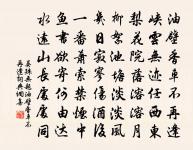 油壁香車不再逢
峽雲無迹任西東
梨花院落溶溶月
柳絮池塘淡淡風
幾日寂寥傷酒後
一番蕭索禁煙中
魚書欲寄何由達
水遠山長處處同
晏殊無題油壁香車不
再逢詞典網書